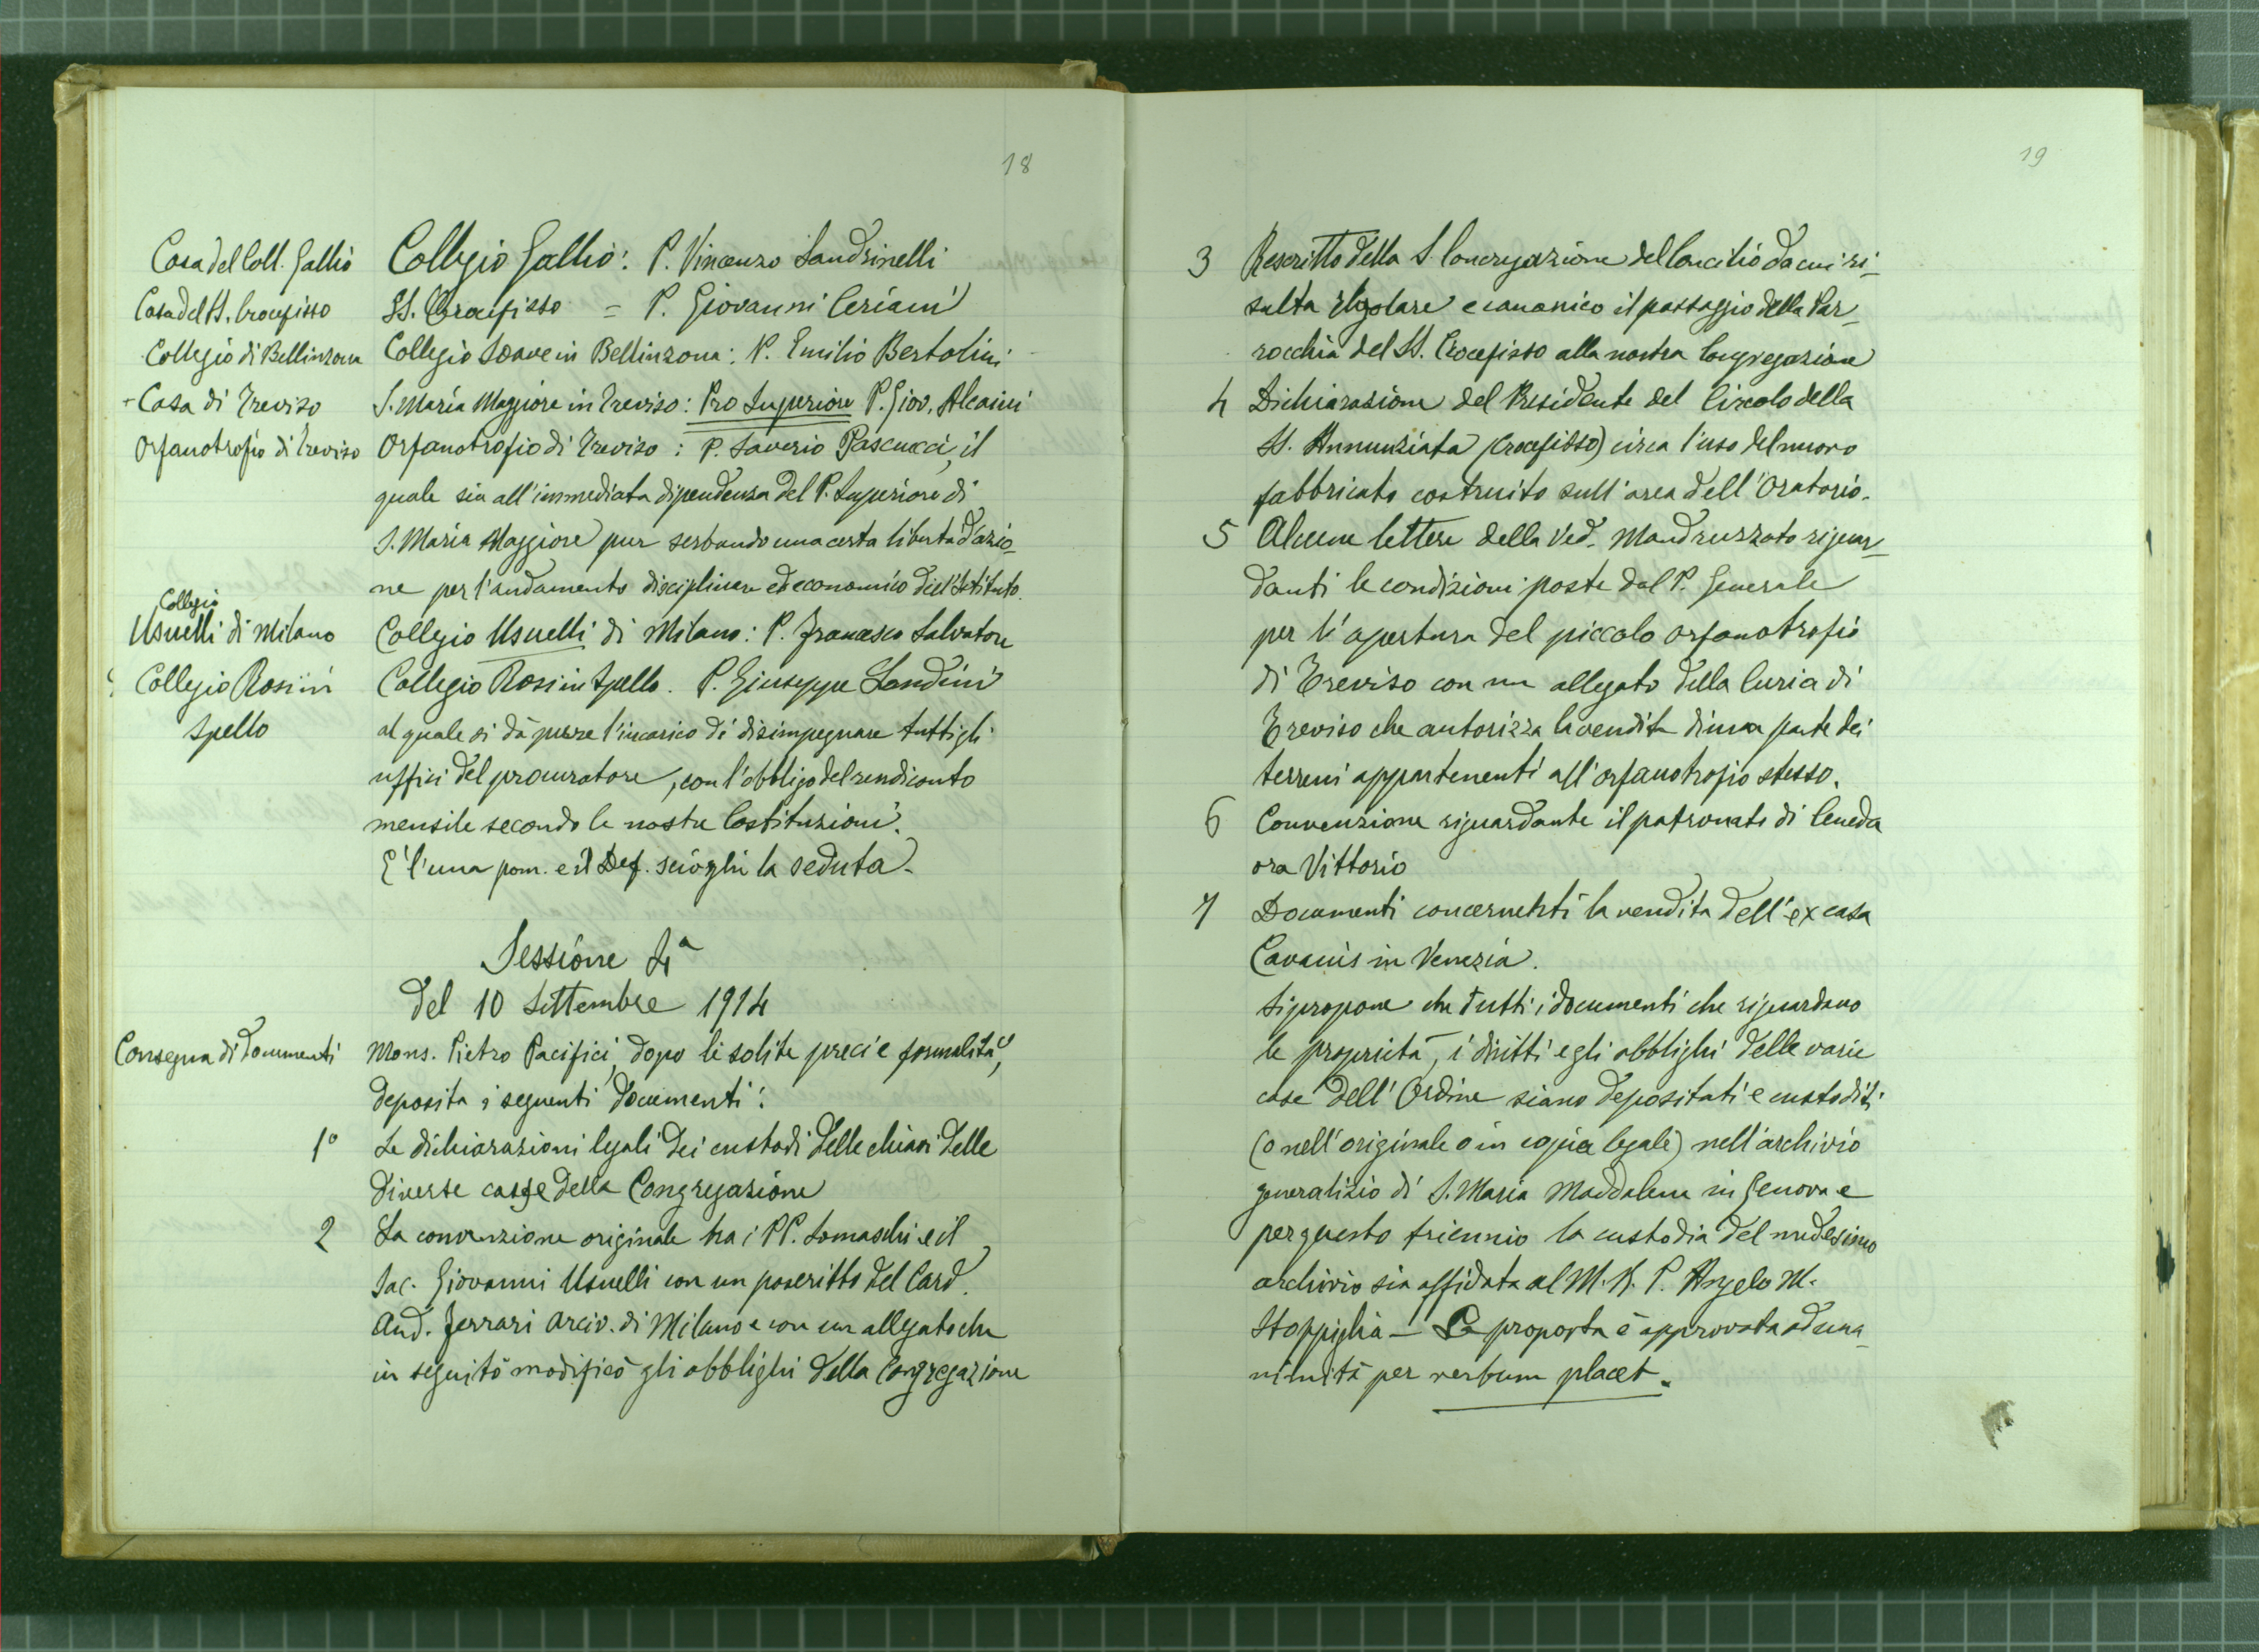 18
Casa del Coll. Gallio
Collegio Gallio: P. Vincenzo Sandrinelli
Casa del SS. Crocefisso
SS. Crocefisso = P. Giovanni Ceriani
Collegio di Bellinzona
Collegio Soave in Bellinzona: P. Emilio Bertolini
Casa di Treviso
S. Maria Maggiore in Treviso: Pro Superiore P. Giov. Alcaini
Orfanotrofio di Treviso
Orfanotrofio di Treviso: P. Saverio Pascucci, il
quale sia all'immediata dipendenza del P. Superiore di
S. Maria Maggiore pur serbando una certa libertà d'azio-
ne per l'andamento disciplinare ed economico dell'Istituto.
Collegio
Usuelli di Milano
Collegio Usuelli di Milano: P. Francesco Salvatore
Collegio Rosini
Spello
Collegio Rosini Spello. P. Giuseppe Landini
al quale si dà pure l'incarico di disimpegnare tutti gli
uffici del procuratore, con l'obbligo del rendiconto
mensile secondo le nostre Costituzioni.
È l'una pom. e il Def. scioglie la seduta.
Sessione 4ª
del 10 Settembre 1914
Consegna di documenti
Mons. Pietro Pacifici, dopo le solite preci e formalità,
deposita i seguenti documenti:
1° Le dichiarazioni legali dei custodi delle chiavi delle
diverse casse della Congregazione
2 La convenzione originale tra i PP. Somaschi e il
Sac. Giovanni Usuelli con un poscritto del Card.
And. Ferrari Arciv. di Milano e con un allegato che
in seguito modificò gli obblighi della Congregazione
19
3 Rescritto della S. Congregazione del Concilio da cui ri-
sulta regolare e canonico il passaggio della Par-
rocchia del SS. Crocefisso alla nostra Congregazione
4 Dichiarazione del Presidente del Circolo della
SS. Annunziata (Crocefisso) circa l'uso del nuovo
fabbricato costruito sull'area dell'Oratorio.
5 Alcune lettere della Ved. Mandruzzato riguar-
danti le condizioni poste dal P. Generale
per l'apertura del piccolo orfanotrofio
di Treviso con un allegato della Curia di
Treviso che autorizza la vendita di una parte dei
terreni appartenenti all'orfanotrofio stesso.
6 Convenzione riguardante il patronato di Ceneda
ora Vittorio
7 Documenti concernenti la vendita dell'ex casa
Cavanis in Venezia.
Si propone che tutti i documenti che riguardano
le proprietà, i diritti e gli obblighi delle varie
case dell'Ordine siano depositati e custoditi
(o nell'originale o in copia legale) nell'archivio
generalizio di S. Maria Maddalena in Genova e
per questo triennio la custodia del medesimo
archivio sia affidata al M. R. P. Angelo M.
Stoppiglia - La proposta è approvata ad una-
nimità per verbum placet.